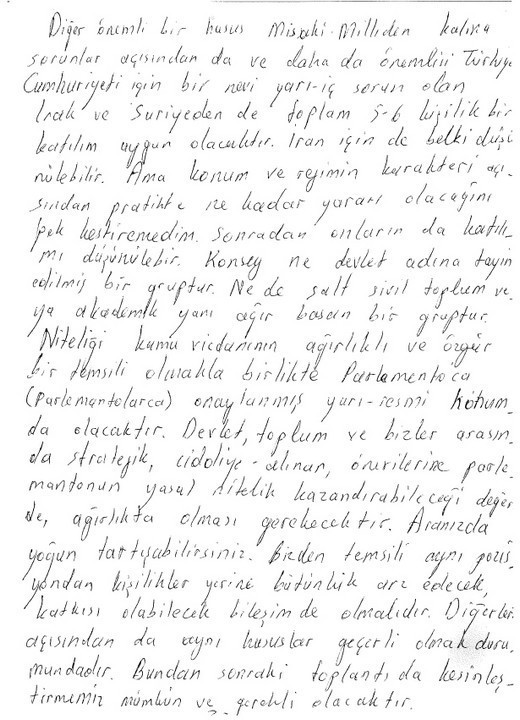 Diğer önemli bir husus Misaki-Milliden kalma
sorunlar açısından da ve daha da önemlisi Türkiye
Cumhuriyeti için bir nevi yarı-iç sorun olan
Irak ve Suriyeden de toplam 5-6 kişilik bir
katılım uygun olacaktır. İran için de belki düşü
nülebilir. Ama konum ve rejimin karakteri açı-
sından pratikte ne kadar yararı olacağını
pek kestiremedim. Sonradan onların da katılı-
mı düşünülebilir. Konsey ne devlet adına tayin
edilmiş bir gruptur. Ne de salt sivil toplum ve-
ya akademik yanı ağır basan bir gruptur.
Niteliği kamu vicdanının ağırlıklı ve özgür
bir temsili olmakla birlikte Parlamentoca
(Parlemantolarca) onaylanmış yarı-resmi konum-
da olacaktır. Devlet, toplum ve bizler arasın-
da stratejik, ciddiye-alınan, önerilerine parle-
mantonun yasal nitelik kazandırabileceği değer
de, ağırlıkta olması gerekecektir. Aranızda
yoğun tartışabilirsiniz. Bizden temsili aynı pozis-
yondan kişilikler yerine bütünlük arz edecek,
katkısı olabilecek bileşimde olmalıdır. Diğerleri
açısından da aynı hususlar geçerli olmak duru-
mundadır. Bundan sonraki toplantıda kesinleş-
tirmemiz mümkün ve gerekli olacaktır.